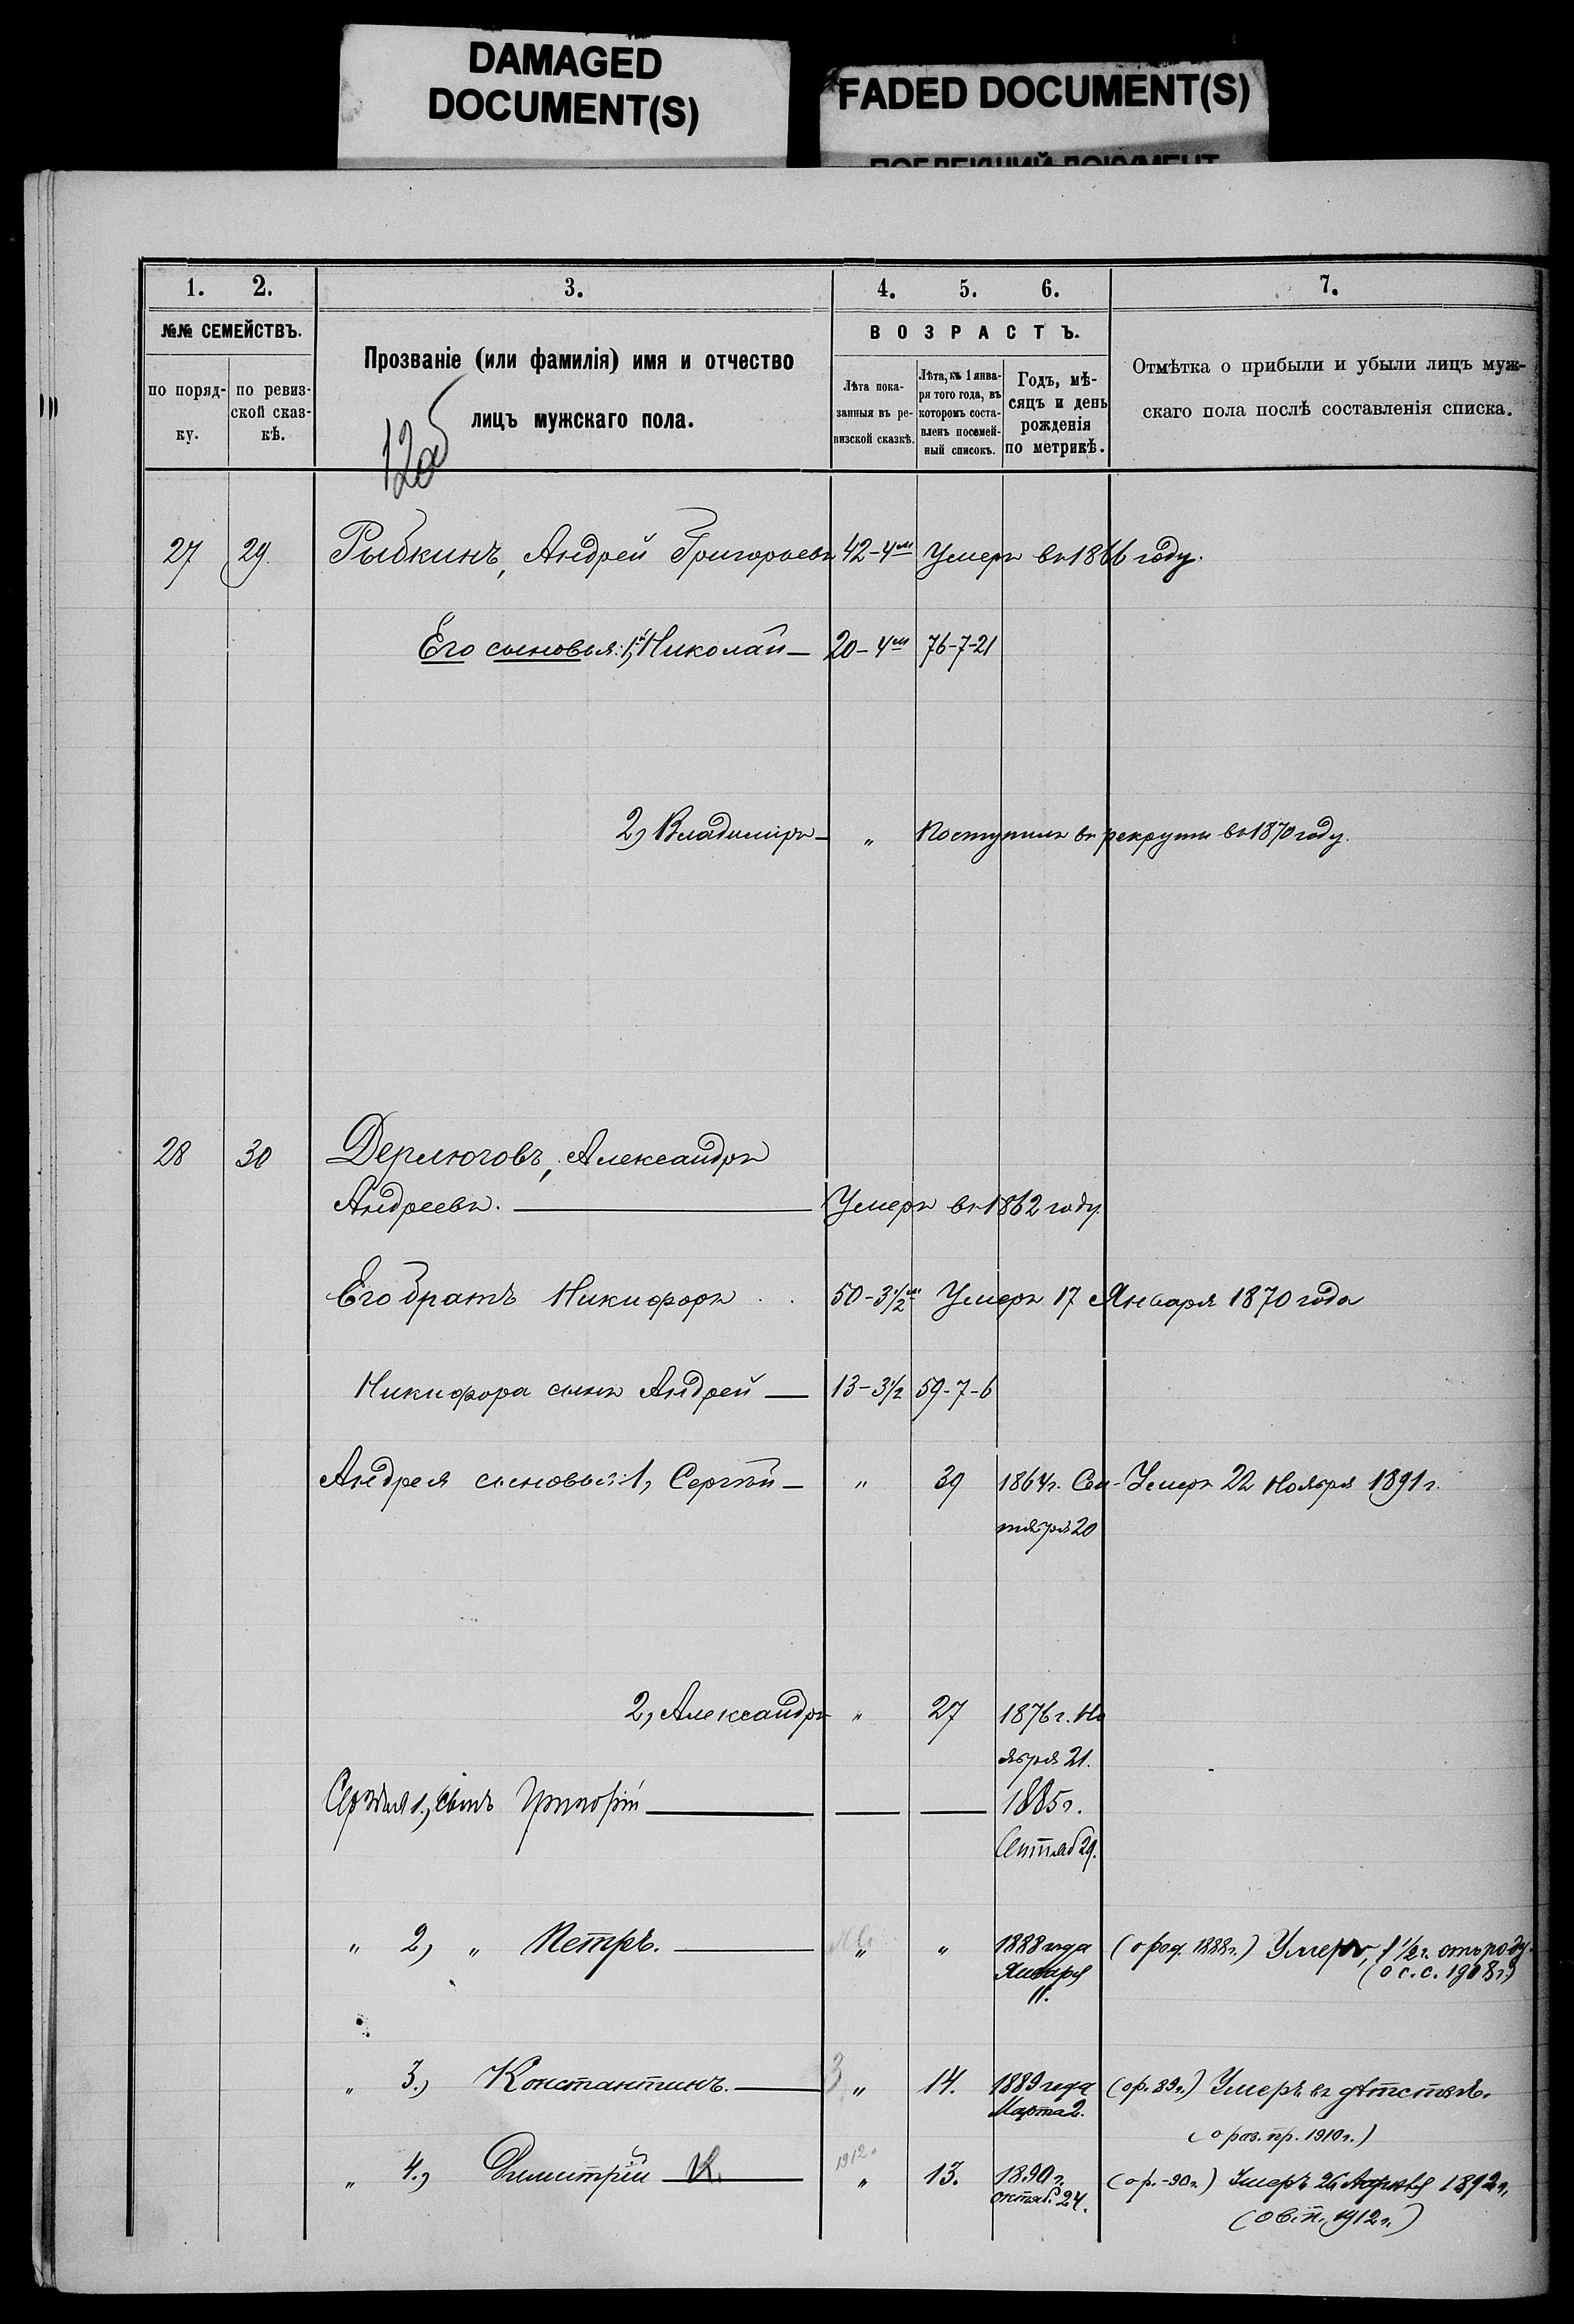 DAMAGED
DOCUMENT(S)
FADED DOCUMENT(S)
1. 2. 3. 4. 5. 6. 7.
№№ СЕМЕЙСТВЪ.
по поряд-
ку.
по ревиз-
ской сказ-
кѣ.
Прозваніе (или фамилія) имя и отчество
лицъ мужскаго пола.
ВОЗРАСТЪ.
Лѣта пока-
занныя въ ре-
визской сказкѣ.
Лѣта, къ 1 янва-
ря того года, въ
которомъ соста-
вленъ посемей-
ный списокъ.
Годъ, мѣ-
сяцъ и день
рожденія
по метрикѣ.
Отмѣтка о прибыли и убыли лицъ муж-
скаго пола послѣ составленія списка.
12об
27 29. Рыбкинъ, Андрей Григорьевъ 42-4м Умеръ въ 1866 году.
Его сыновья: 1, Николай — 20-4м 76-7-21
2, Владиміръ — „ Поступилъ въ рекруты въ 1870 году.
28 30 Дерлюговъ, Александръ
Андреевъ. — Умеръ въ 1862 году.
Его братъ Никифоръ . . 50-3½м Умеръ 17 Января 1870 года
Никифора сынъ Андрей — 13-3½ 59-7-6
Андрея сыновья: 1, Сергѣй — „ 39 1864г. Сен- Умеръ 22 Ноября 1891 г.
тября 20
2, Александръ „ 27 1876 г. Но
ября 21.
Сергѣя 1, сынъ Григорій — — — 1885 г.
Сентяб 29.
„ 2, „ Петръ. — „ „ 1888 года (о род. 1888 г.) Умеръ, 1½ г. отъ роду.
Января (о с. с. 1908 г.)
11.
„ 3.) Константинъ. — 3 „ 14. 1889 года (о р. 89 г.) Умеръ въ дѣтствѣ.
Марта 2.
(о раз. пр. 1910 г.)
„ 4.) Димитрій — К. 1912 „ 13. 1890 г. (о р. -90 г.) Умеръ 26 Апрѣля 1892 г.
октяб. 24.
(о в. п. 1912 г.)